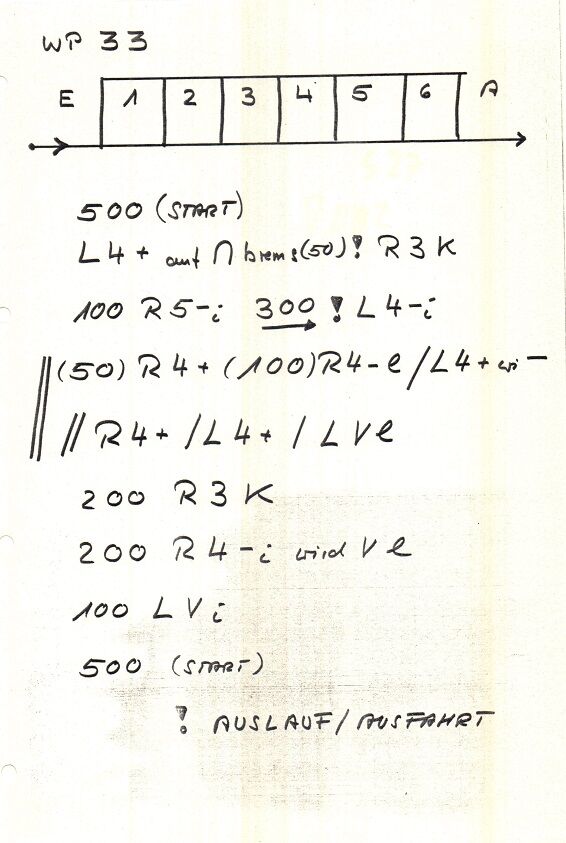 WP 33
E 1 2 3 4 5 6 A
500 (START)
L4+ auf ∩ brems(50)! R3K
100 R5-i 300 ! L4-i
(50) R4+ (100)R4-e/L4+ wi -
// R4+ /L4+ / LVe
200 R3K
200 R4-i wird Ve
100 LVi
500 (START)
! AUSLAUF/AUSFAHRT